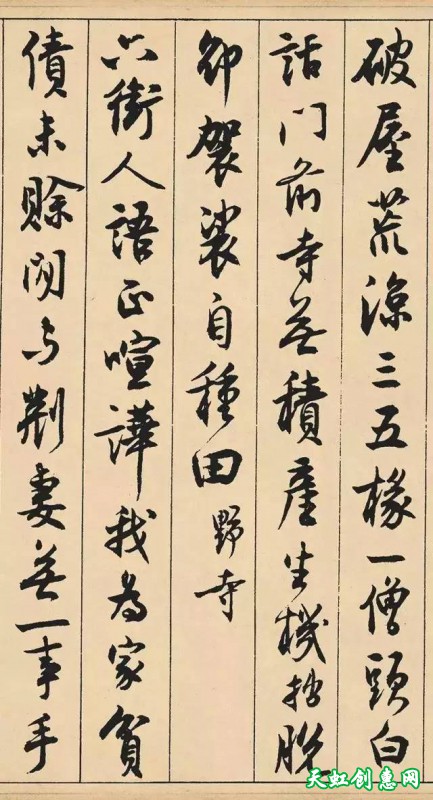 破屋荒凉三五椽一僧頭白
話門前寺無積産生機拙脫
卻袈裟自種田 野寺
六街人語正喧譁我為家貧
債未賒閒与荆妻無一事手
天虹创惠网